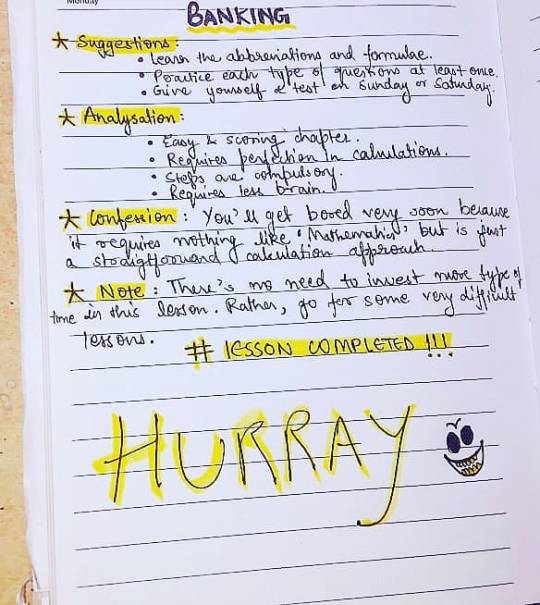 Monday
BANKING
★ Suggestions :
• Learn the abbreviations and formulae.
• Practice each type of questions at least once.
• Give yourself a test on Sunday or Saturday.
★ Analysation :
• Easy & scoring chapter.
• Requires perfection in calculations.
• Steps are compulsory.
• Requires less brain.
★ Confession : You'll get bored very soon because
it requires nothing like 'Mathematics' but is just
a straightforward calculation approach.
★ Note : There's no need to invest more type of
time in this lesson. Rather, go for some very difficult
lessons.
# LESSON COMPLETED !!!
HURRAY